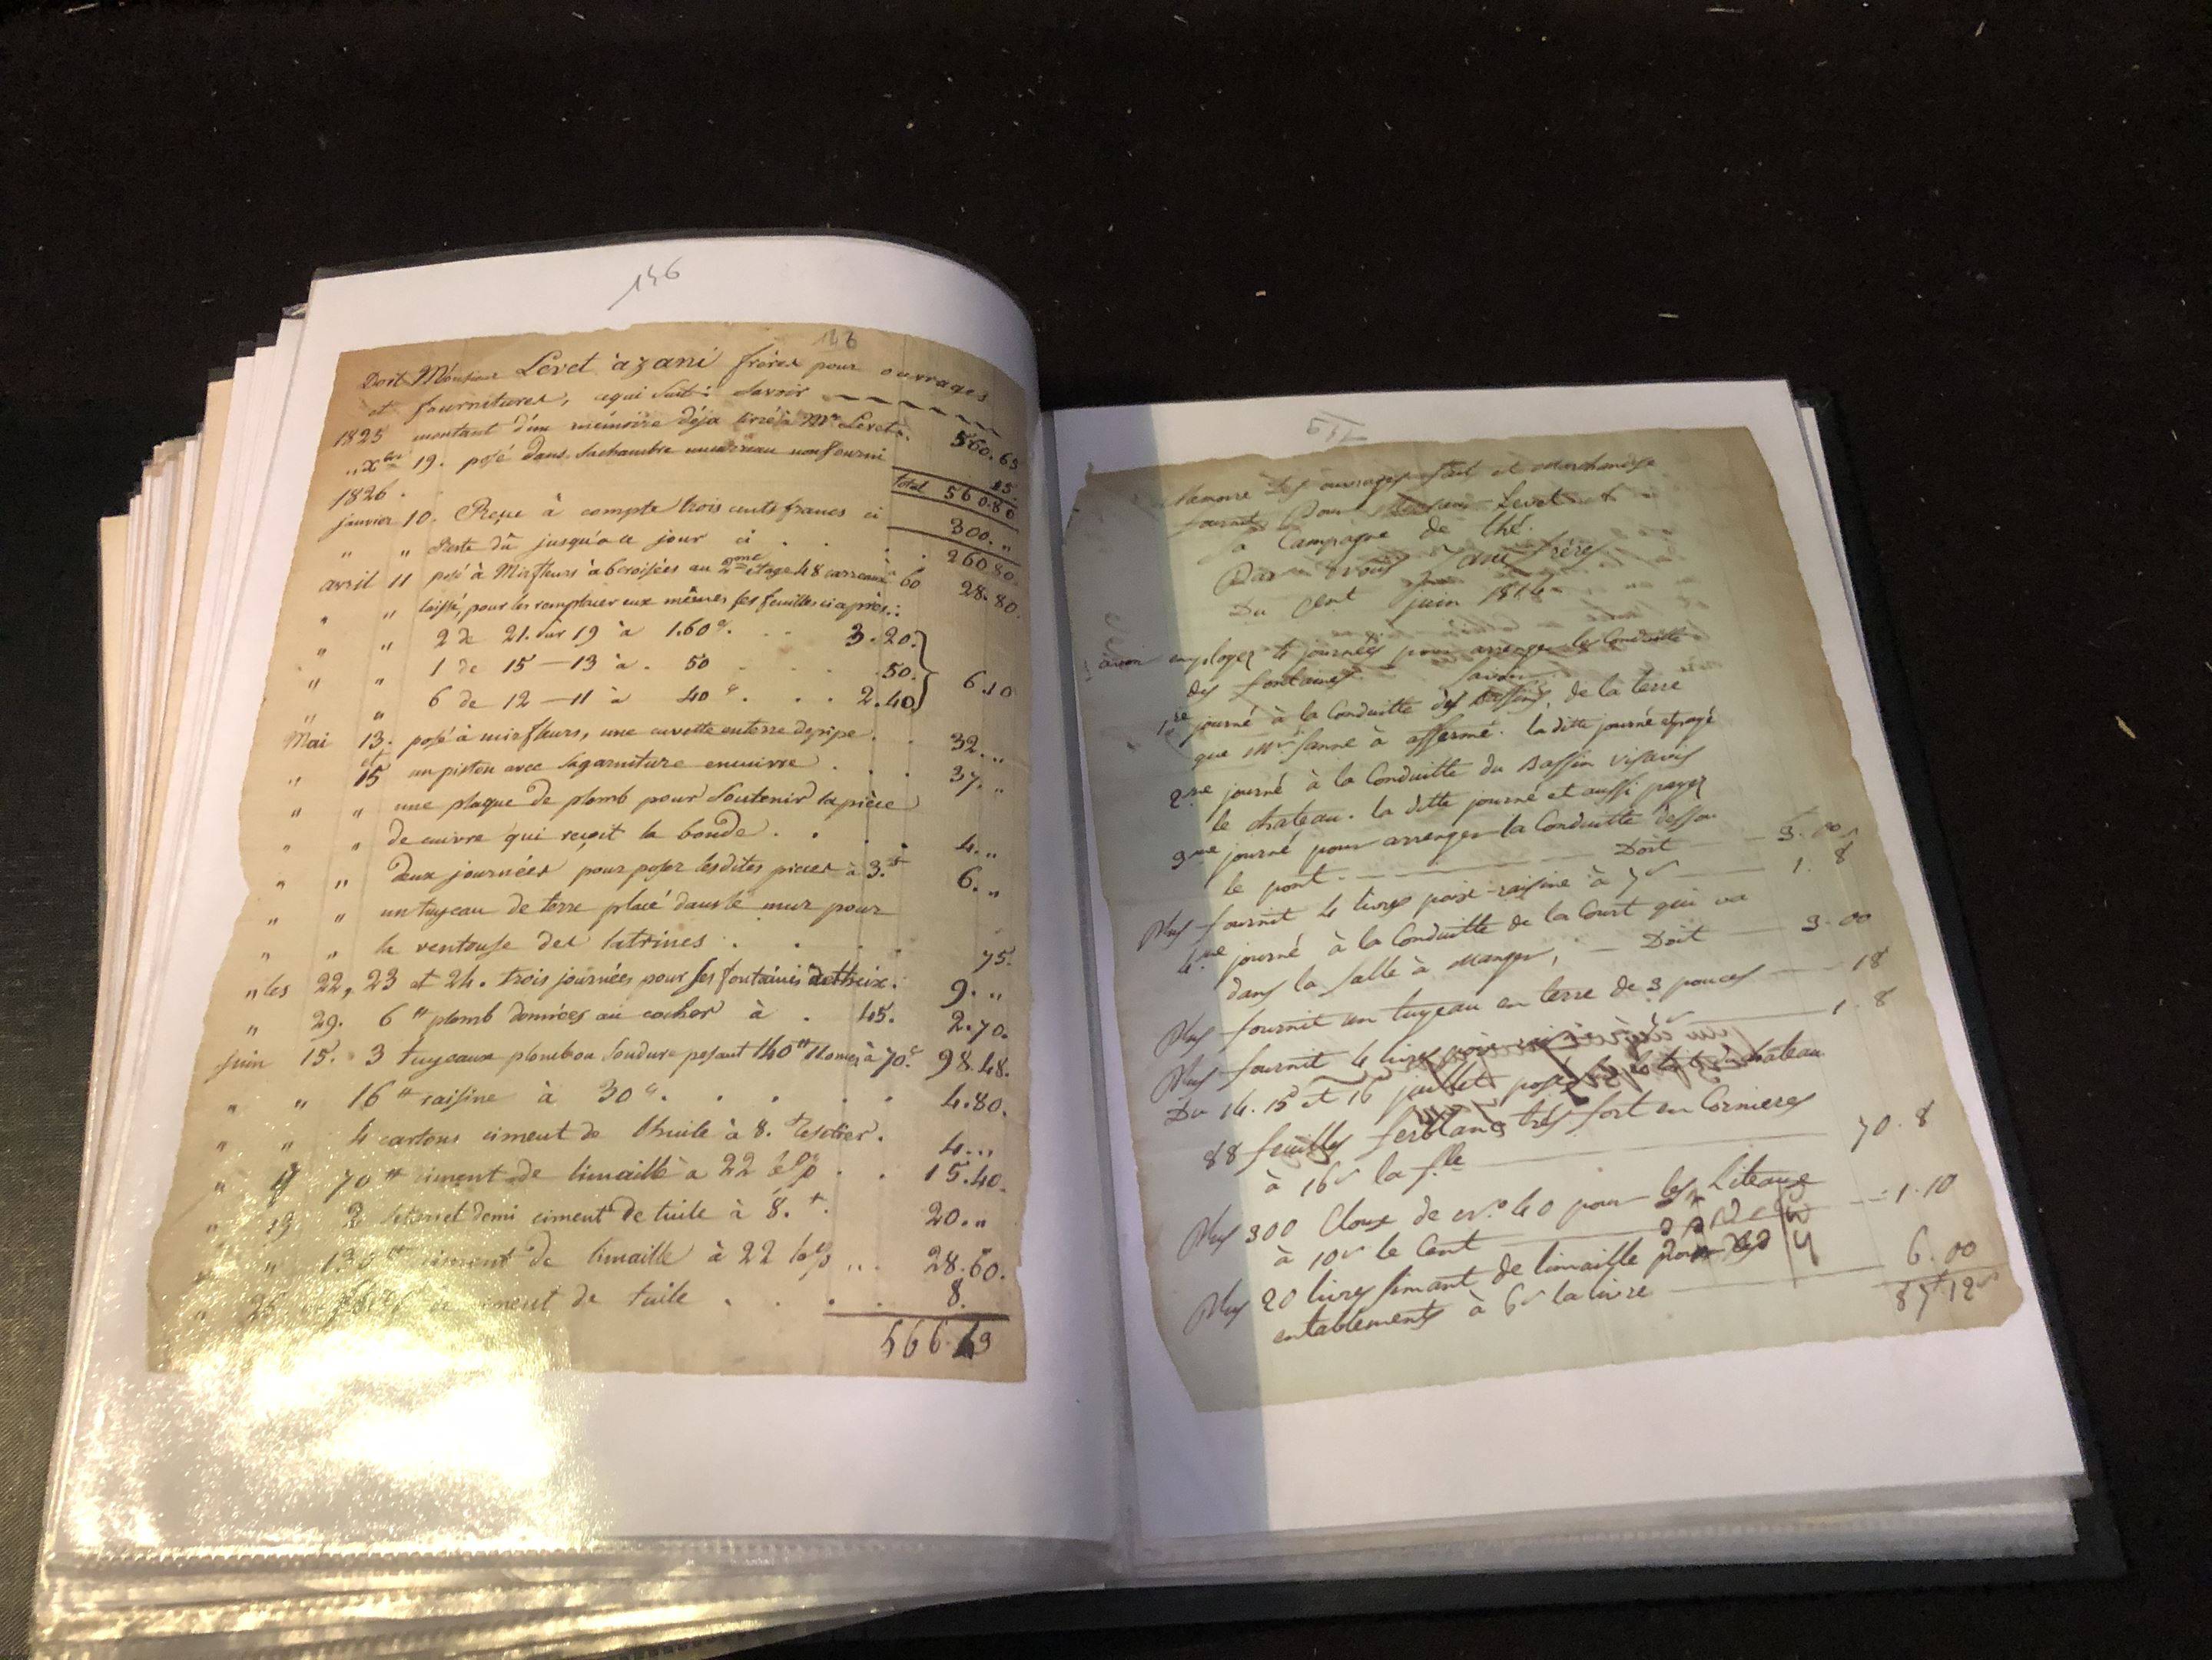 136
136
Doit Monsieur Levet à zani frères pour ouvrages
et fournitures, cequi suit: Savoir
1825 montant d'un mémoire déja livré à Mr Levet. 560.65
" Xbre 19. posé dans sachambre un carreau non fourni 15.
total 560.80
1826.
janvier 10. Reçu à compte trois cents francs ci 300."
" " Reste dû jusqu'a ce jour ci . . . 260.80.
avril 11 posé à Mirefleurs à 6 croisées au 2me étage 48 carreaux à 60 28.80
" " laissé, pour les remplacer eux mêmes les feuilles ci après:
" " 2 de 21. sur 19 à 1.60c. . . 3.20.
" " 1 de 15 — 13 à . 50 . . . .50. 6.10
" " 6 de 12 — 11 à 40c. . . 2.40.
Mai 13. posé à mirefleurs, une cuvette en terre de pipe . . 32."
et
" 15 un piston avec sa garniture en cuivre . . . 37."
" " une plaque de plomb pour Soutenir la pièce
" " de cuivre qui reçoit la bonde . . . 4."
" " deux journées pour poser lesdites pieces à 3.# 6."
" " un tuyeau de terre placé dans le mur pour
" " la ventouse des latrines . . . . 75.
" les 22, 23 et 24. trois journées pour les fontaines detheix. 9."
" 29. 6 # plomb données au cocher à . 45. 2.70.
Juin 15. 3 tuyeaux plomb ou Soudure pesant 140 # à 70c. 98.48.
" " 16 # raisine à 30c. . . . . . 4.80.
" " 4 cartons ciment de thuile à 8. 4."
" 70 # ciment de limaille à 22 . . 15.40.
" 19. 2 et demi ciment de tuile à 8.# 20."
" " 130 # ciment de limaille à 22 ... 28.60.
" 26 ciment de tuile . . . . 8.
566.43
Memoire des ouvrages fait et Marchandise
fournit Pour Monsieur Levet à
sa Campagne de thé.
Par Nous Zani frères
Du juin 1814
avoir employer 4 journées pour arranger les Conduitte
des fontaines. Savoir
1re journé à la Conduitte des Bassins, de la terre
que Mr à affermé. la ditte journé et payé
2me journé à la Conduitte du Bassin visavis
le chateau. la ditte journé et aussi payer
3me journé pour arranger la Conduitte dessou
le pont. — Doit — 3.00
Plus fournit 4 livres poix-raisine à 7s — 1.8
4me journé à la Conduitte de la Court qui va
dans la Salle à manger, — Doit — 3.00
Plus fournit un tuyeau en terre de 3 pouces — 18
Plus fournit 4 livres — 1.8
Du 14. 15 et 16 juillet posé chateau
88 feuilles ferblanc trés fort en Cornieres
à 16s la flle — 70.8
Plus 300 Cloux de No 40 pour les Liteaux
à 10s le Cent — 1.10
Plus 20 livres simant de limaille pour les
entablements à 6s la livre — 6.00
87# 12s